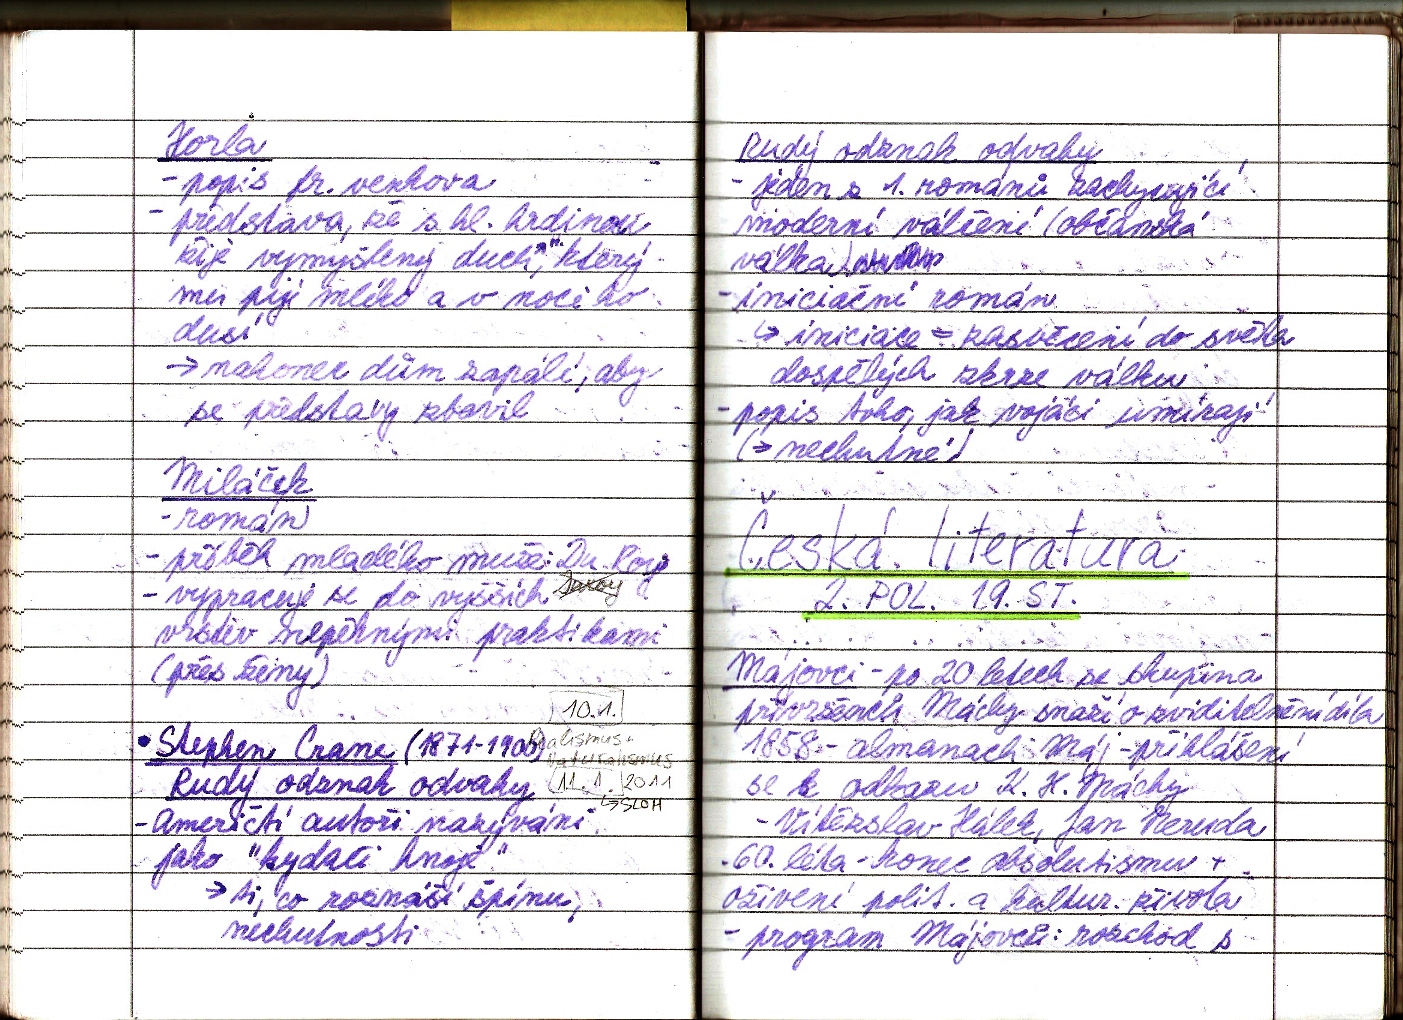 Horla
- popis fr. venkova
- představa, že s hl. hrdinou
žije vymyšlený duch, který
mu pije mléko a v noci ho
dusí
→ nakonec dům zapálí, aby
se představy zbavil
Miláček
- román
- příběh mladého muže: Du Roy
- vypracuje se do vyšších
vrstev nepěknými praktikami
(přes ženy)
10.1.
realismus
naturalismus
11.1. 2011
↳ SLOH
• Stephen Crane (1871-1900)
Rudý odznak odvahy
- američtí autoři nazýváni
jako "kydači hnoje"
→ ti, co roznáší špínu,
nechutnosti
Rudý odznak odvahy
- jeden z 1. románů zachycující
moderní válčení (občanská
válka)
- iniciační román
↳ iniciace = zasvěcení do světa
dospělých skrze válku
- popis toho, jak vojáci umírají
(→ nechutné)
Česká literatura
2. POL. 19. ST.
Májovci - po 20 letech se skupina
přívrženců Máchy snaží o zviditelnění díla
1858 - almanach Máj - přihlášení
se k odkazu K. H. Máchy
- Vítězslav Hálek, Jan Neruda
- 60. léta - konec absolutismu +
oživení polit. a kultur. života
- program Májovců: rozchod s